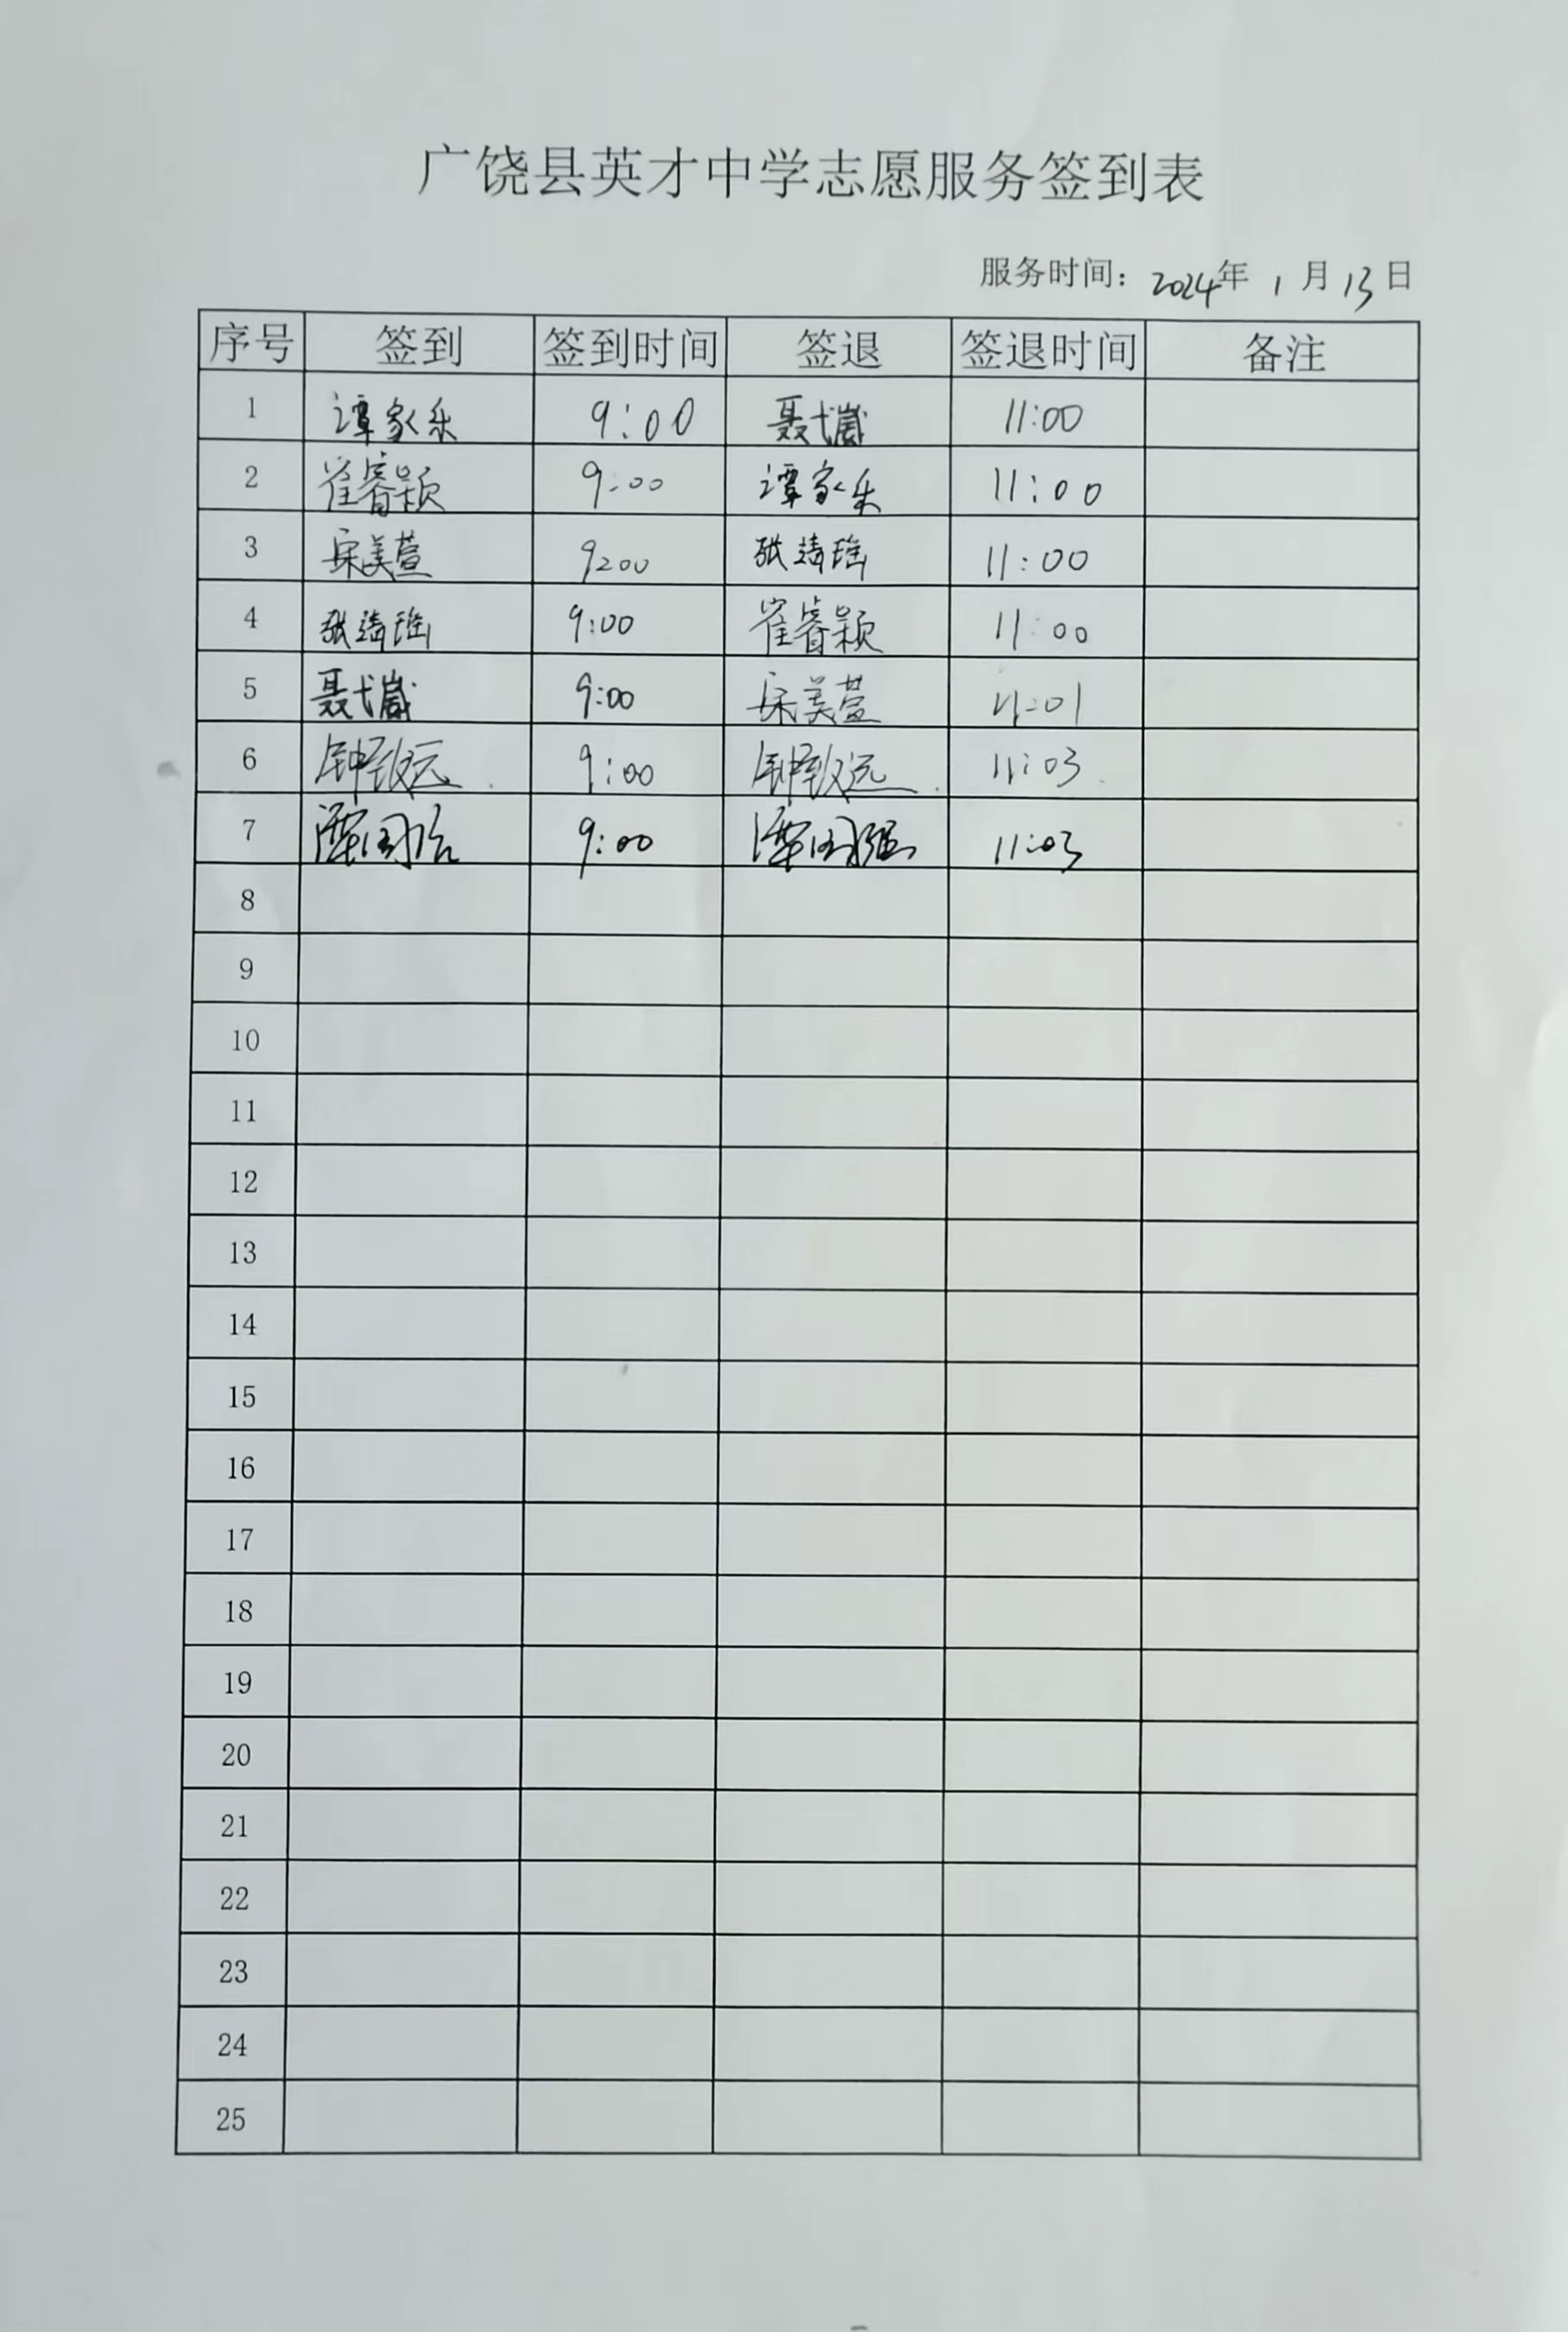 广饶县英才中学志愿服务签到表
服务时间：2024年 1月13日
序号 签到 签到时间 签退 签退时间 备注
1 谭家乐 9:00 11:00
2 崔睿颖 9:00 谭家乐 11:00
3 宋美萱 9:00 张婧瑶 11:00
4 张婧瑶 9:00 崔睿颖 11:00
5 9:00 宋美萱 11:01
6 钟致远 9:00 钟致远 11:03
7 9:00 11:03
8
9
10
11
12
13
14
15
16
17
18
19
20
21
22
23
24
25